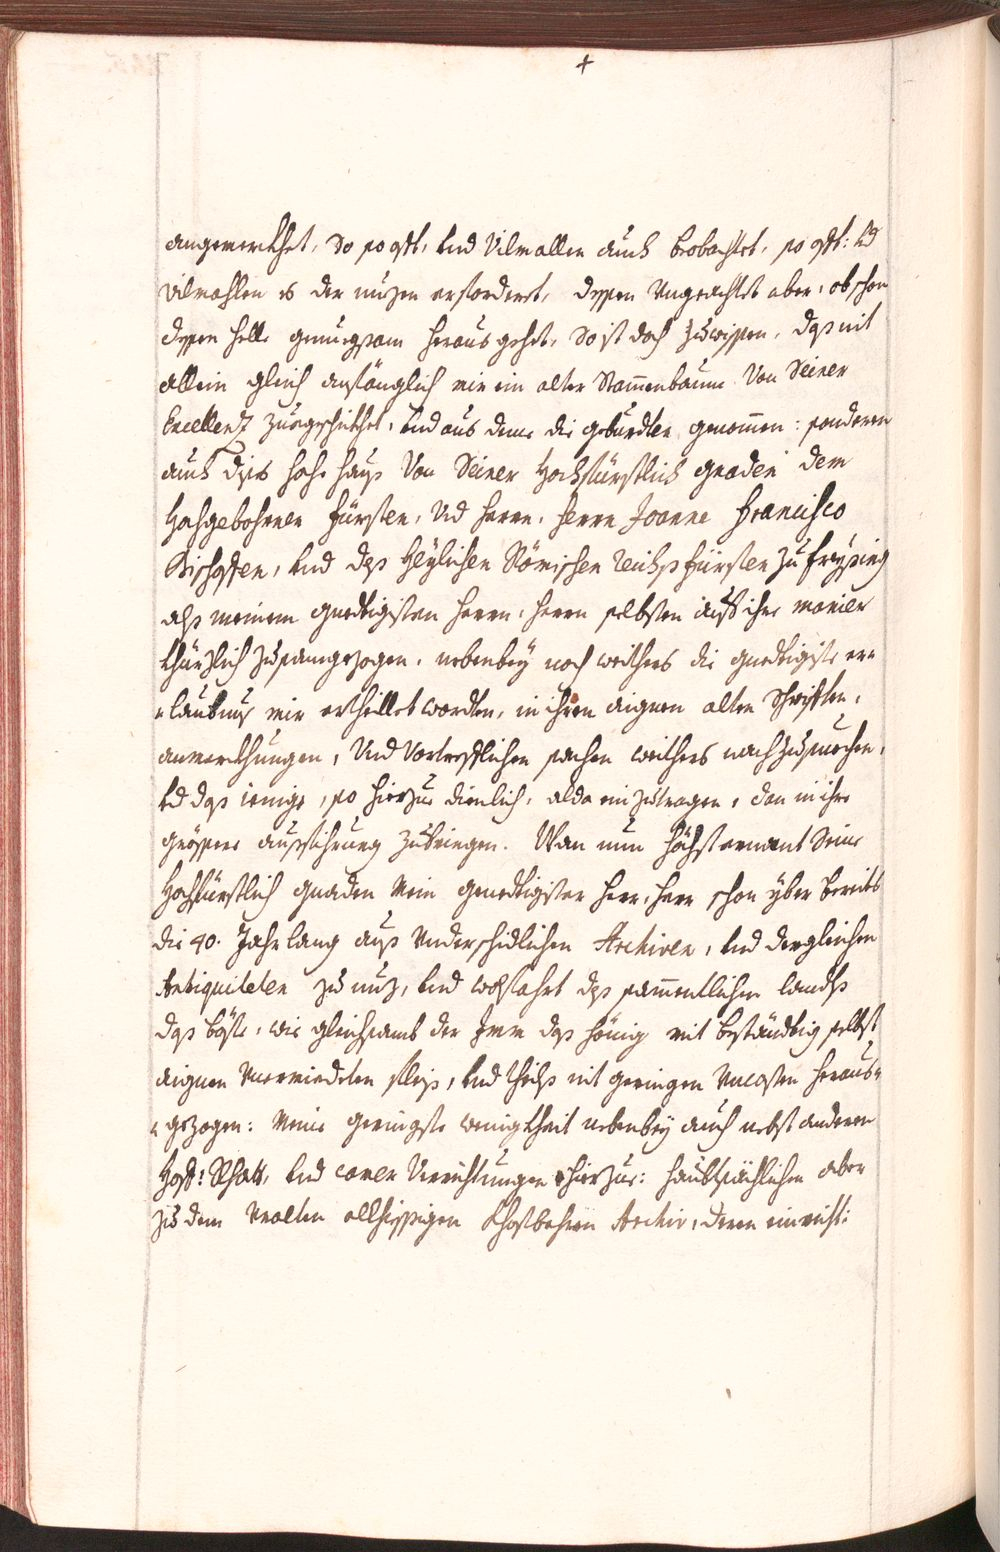 +
angemerckhet, So so offt, und Vilmallen auch beobachtet, so offt: Ud
vilmahlen es der nuzen erforderet, dessen Ungeachtet aber, obschon
dessen helle genuegsam heraus gehet, So ist doch zu wissen, dass nit
allein gleich anfänglich mir ein alter Stammenbaum Von Seiner
Excellenz zuegeschickhet, und aus deme die geburdten genommen: sonderen
auch dises hohe haus Von Seiner Hochfürstlich gnaden dem
Hochgebohrnen Fürsten, Ud Herrn, Herrn Joanne Francisco
Bischoffen, und dess Heylichen Römischen Reichs Fürsten zu Freysing
alss meinem gnedtigisten Herrn, Herrn selbsten auff ihre manier
khürzlich zusamgezogen, nebenbey noch weithers die gnedtigiste er=
=laubnus mir erthaillet wordten, in ihren aignen alten Schrifften,
anmerckhungen, Und Vortrefflichen sachen weithers nachzusuechen,
Ud dass ienige, so hierzue dienlich, alda einzutragen, dan in ihre
grössere ausfihrung zubringen. Wan nun höchsternant Seine
Hochfürstlich gnaden Mein genedtigister Herr, Herr schon yber bereits
die 40. Jahr lang auss Underschidlichen Archiven, und dergleichen
Antiquiteten zu nuz, und wolfahrt dess sammentlichen landts
dassböste, wie gleichsamb der Imm dass hönig mit beständtig selbst
aignen Unermiedeten fleiss, und theils nit geringen Uncosten heraus=
=gezogen: Meine geringste wenigkheit nebenbey auch nebst anderen
Hoff: Rhatt, und Verrichtungen hierzue: haubtsächlichen aber
zu dem Uralten allhiessigen khostbahren Archiv, deren einricht: